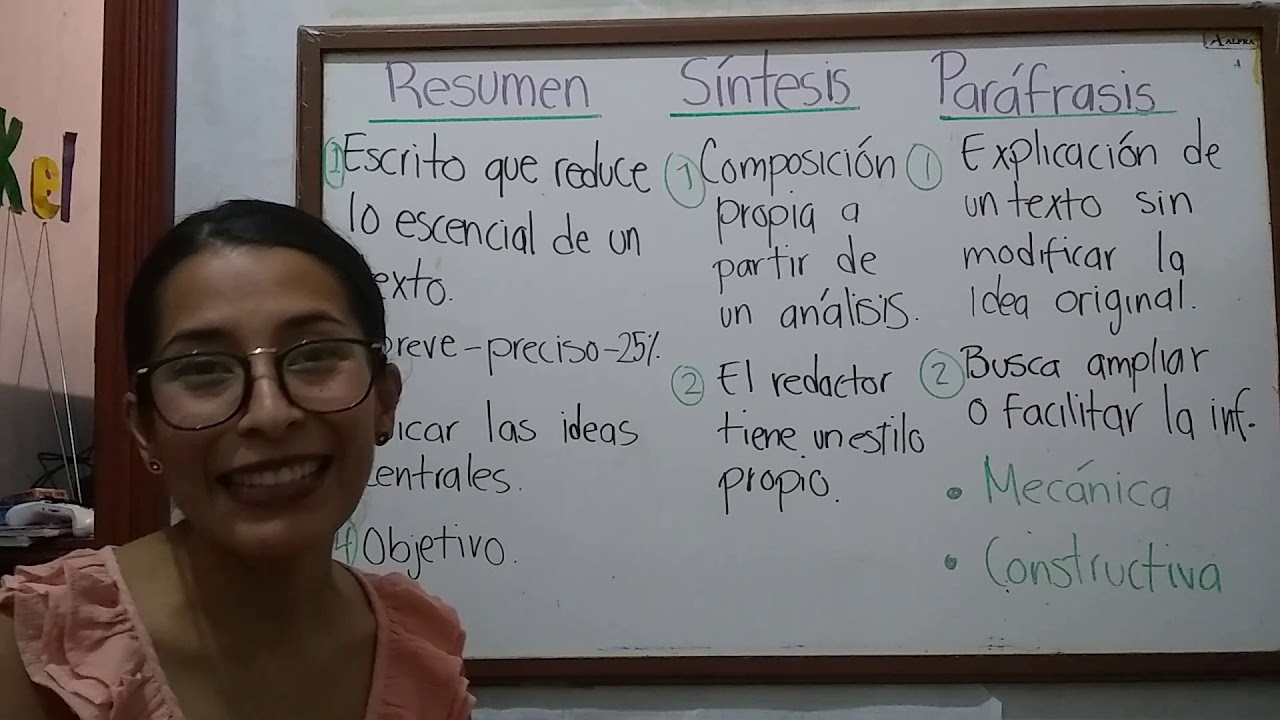 Resumen
① Escrito que reduce
lo escencial de un
exto.
breve-preciso-25%
icar las ideas
entrales.
④ Objetivo.
Síntesis
① Composición
propia a
partir de
un análisis.
② El redactor
tiene un estilo
propio.
Paráfrasis
① Explicación de
un texto sin
modificar la
idea original.
② Busca ampliar
o facilitar la inf.
• Mecánica
• Constructiva
ALFRA
xel